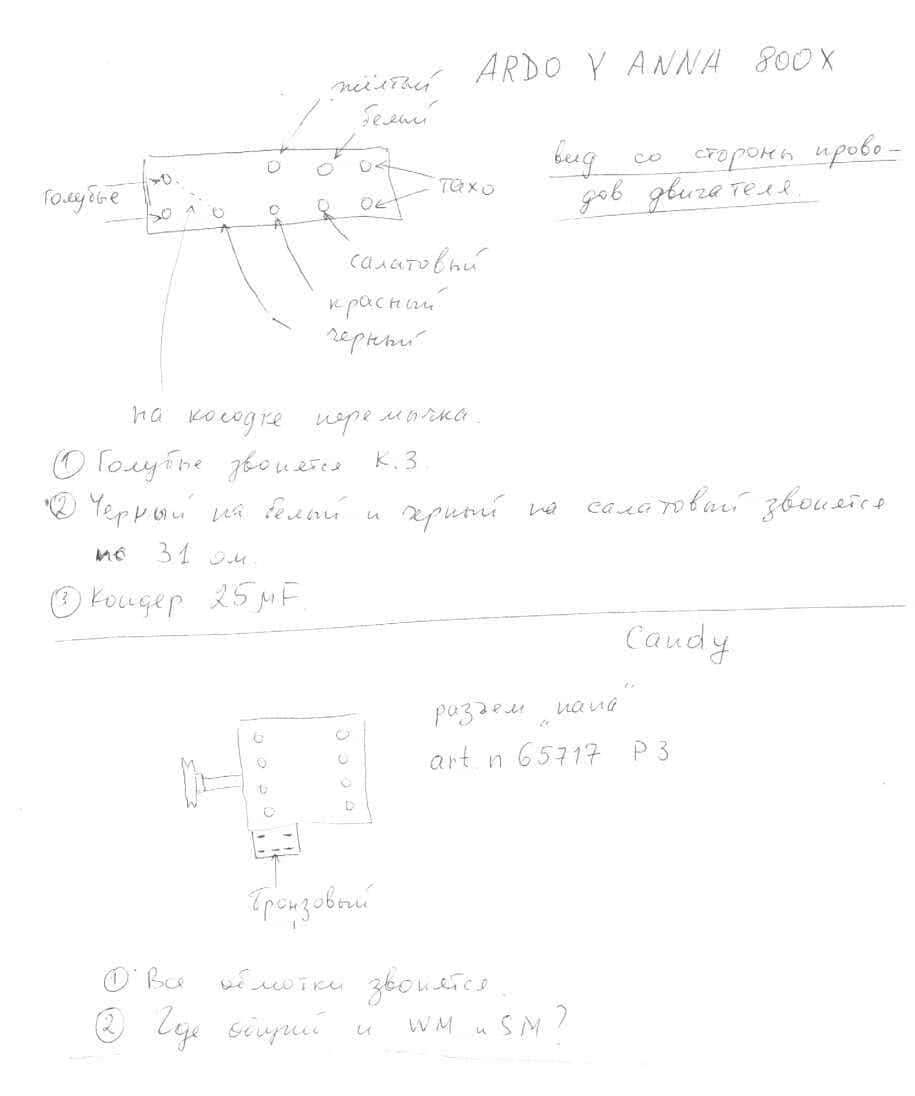 ARDO Y ANNA 800X
жёлтый
белый
вид со стороны прово-
дов двигателя.
голубые
тахо
салатовый
красный
черный
на колодке перемычка.
① Голубые звонятся К.З.
② Черный на белый и черный на салатовый звонятся
по 31 ом.
③ Кондер 25 μF.
Candy
разъем „папа"
art. n 65717 P3
Бронзовый
① Все обмотки звонятся.
② Где общий и WM и SM?